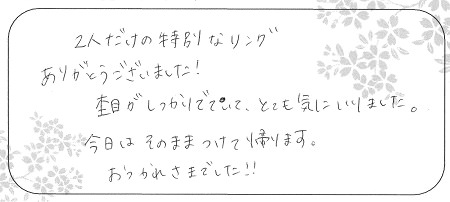 2人だけの特別なリング
ありがとうございました!
杢目がしっかりでていて、とても気にいりました。
今日はそのままつけて帰ります。
おつかれさまでした!!